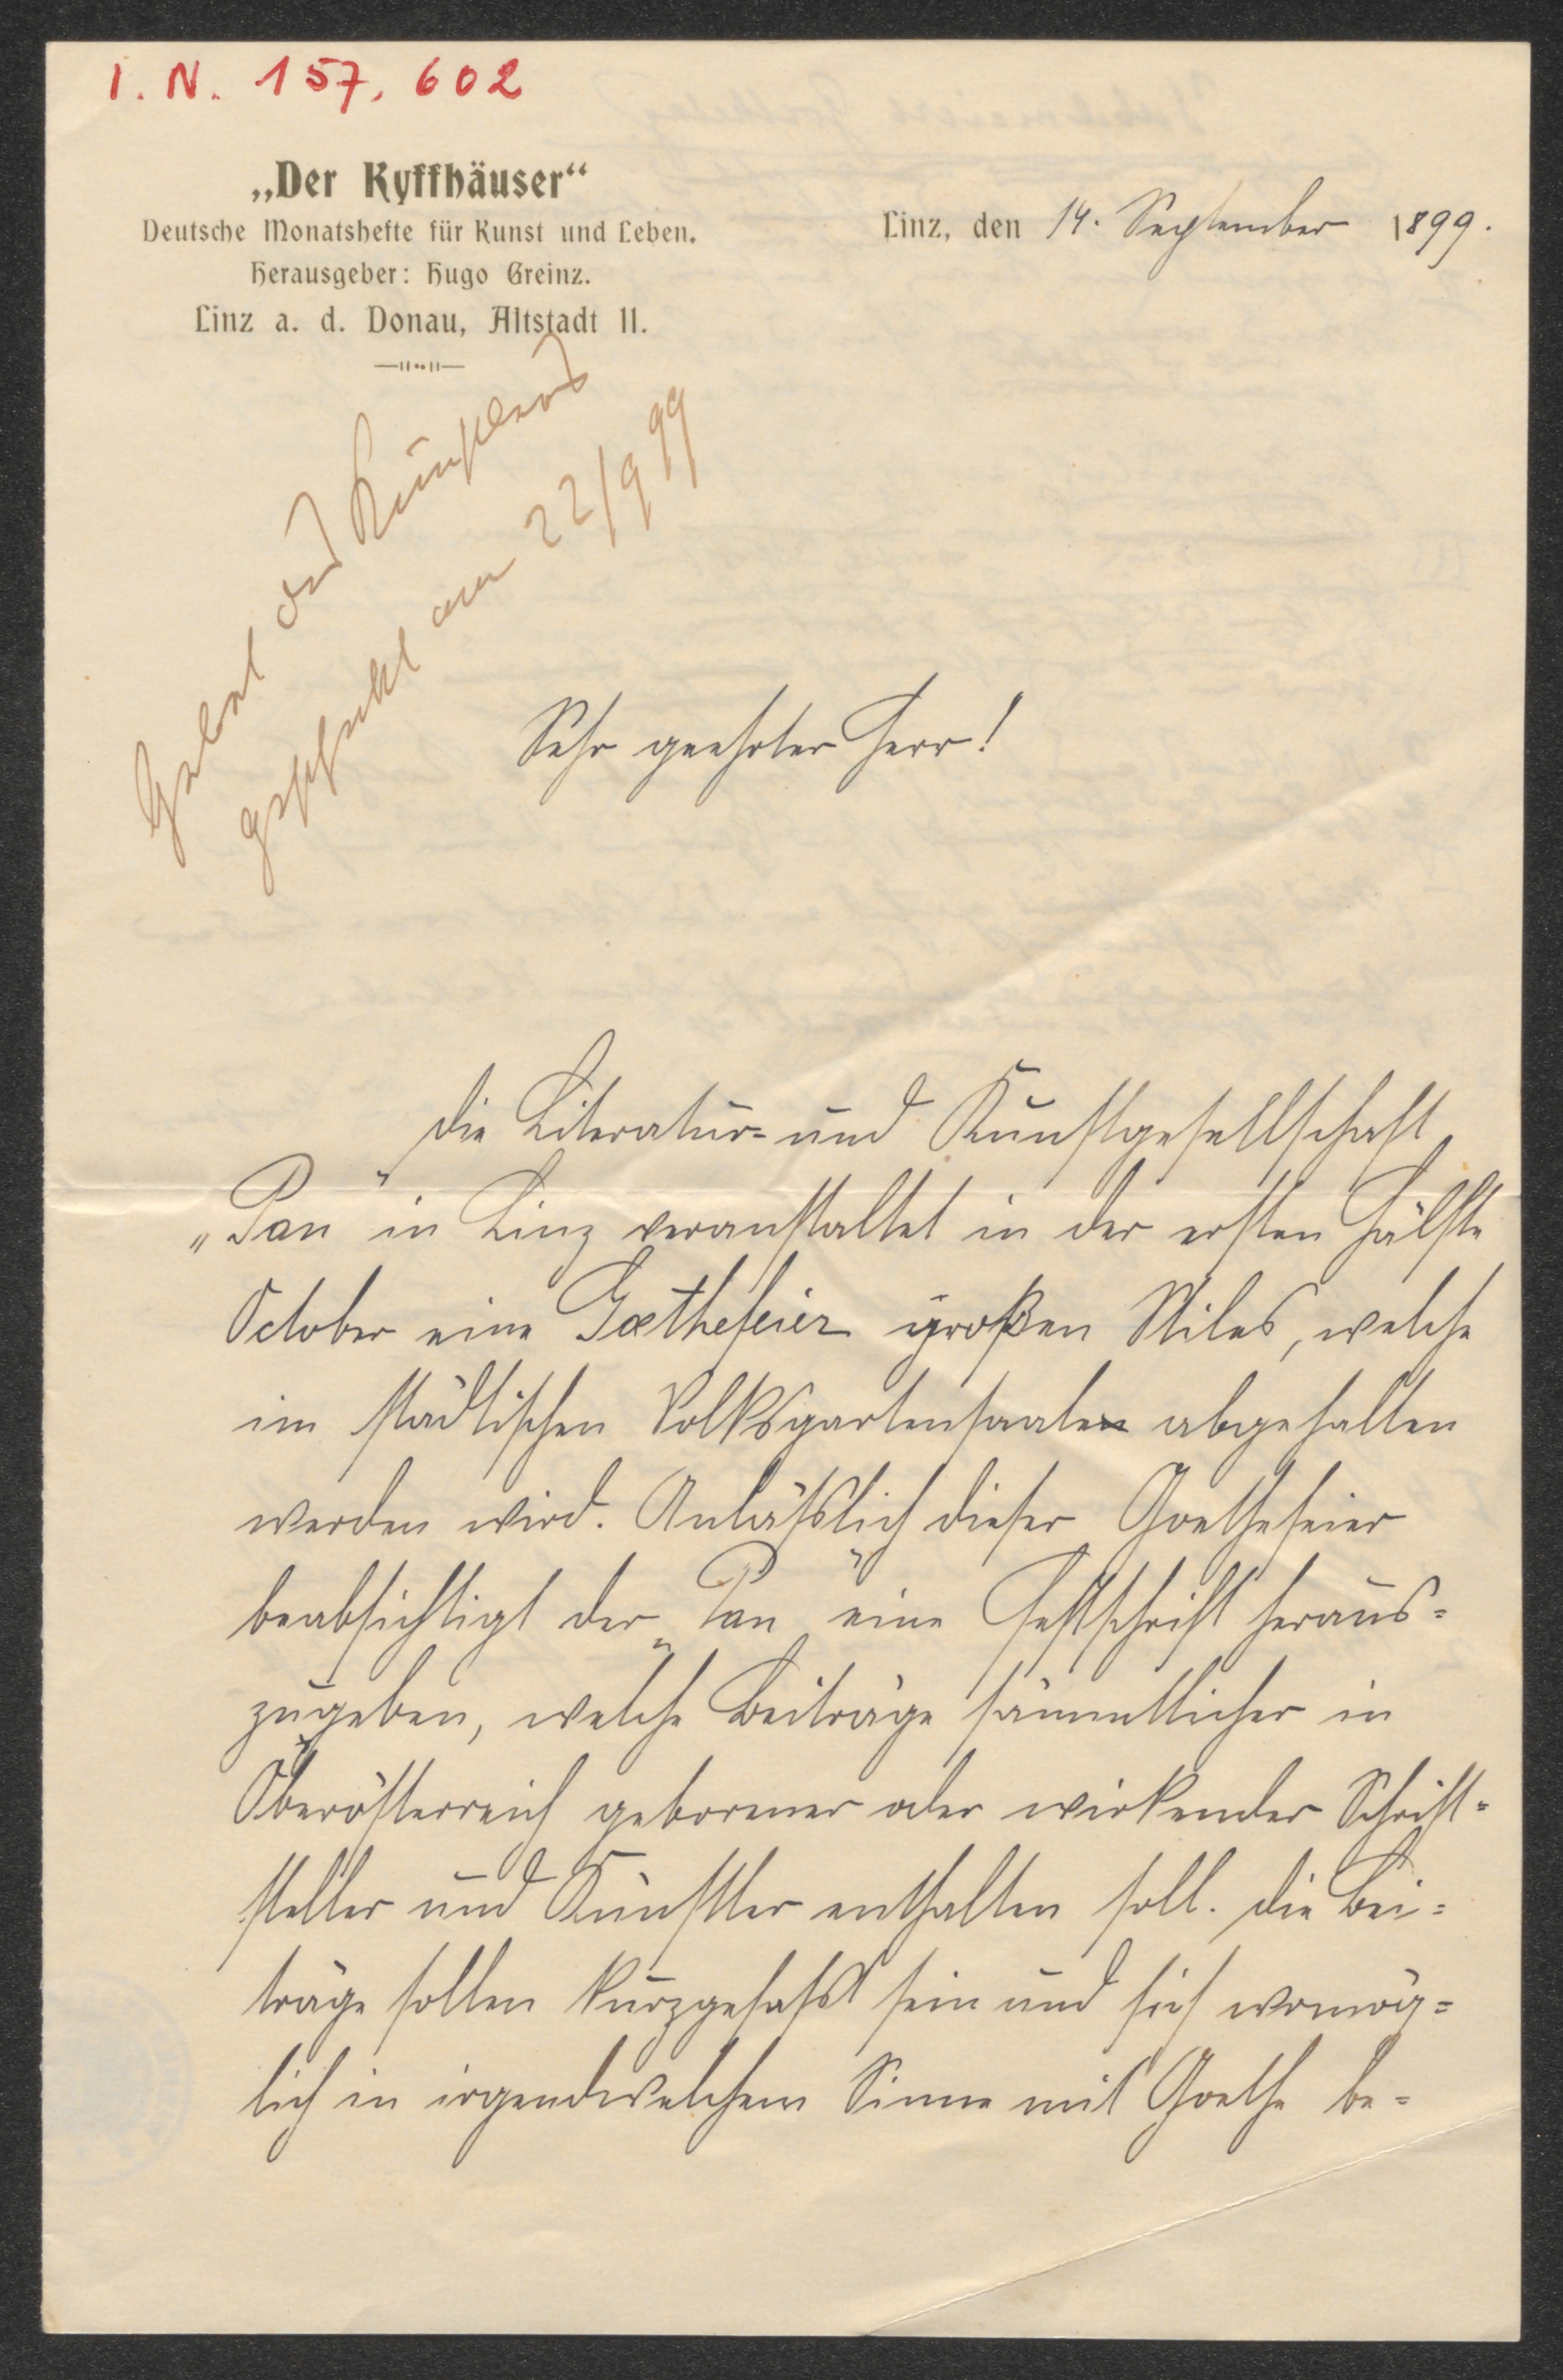 I. N. 157.602
„Der Kyffhäuser“
Deutsche Monatshefte für Kunst und Leben.
Herausgeber: Hugo Greinz.
Linz a. d. Donau, Altstadt 11.
Linz, den 14. September 1899.
Gebet des Künstlers
geschickt am 22/9 99
Sehr geehrter Herr!
Die Literatur- und Kunstgesellschaft
„Pan“ in Linz veranstaltet in der ersten Hälfte
October eine Goethefeier großen Stiles, welche
im städtischen Volksgartensaale abgehalten
werden wird. Anlässlich dieser Goethefeier
beabsichtigt der „Pan“ eine Festschrift heraus=
zugeben, welche Beiträge sämmtlicher in
Oberösterreich geborener oder wirkender Schrift=
steller und Künstler enthalten soll. Die Bei=
träge sollen kurzgefasst sein und sich womög=
lich in irgendwelchem Sinne mit Goethe be=